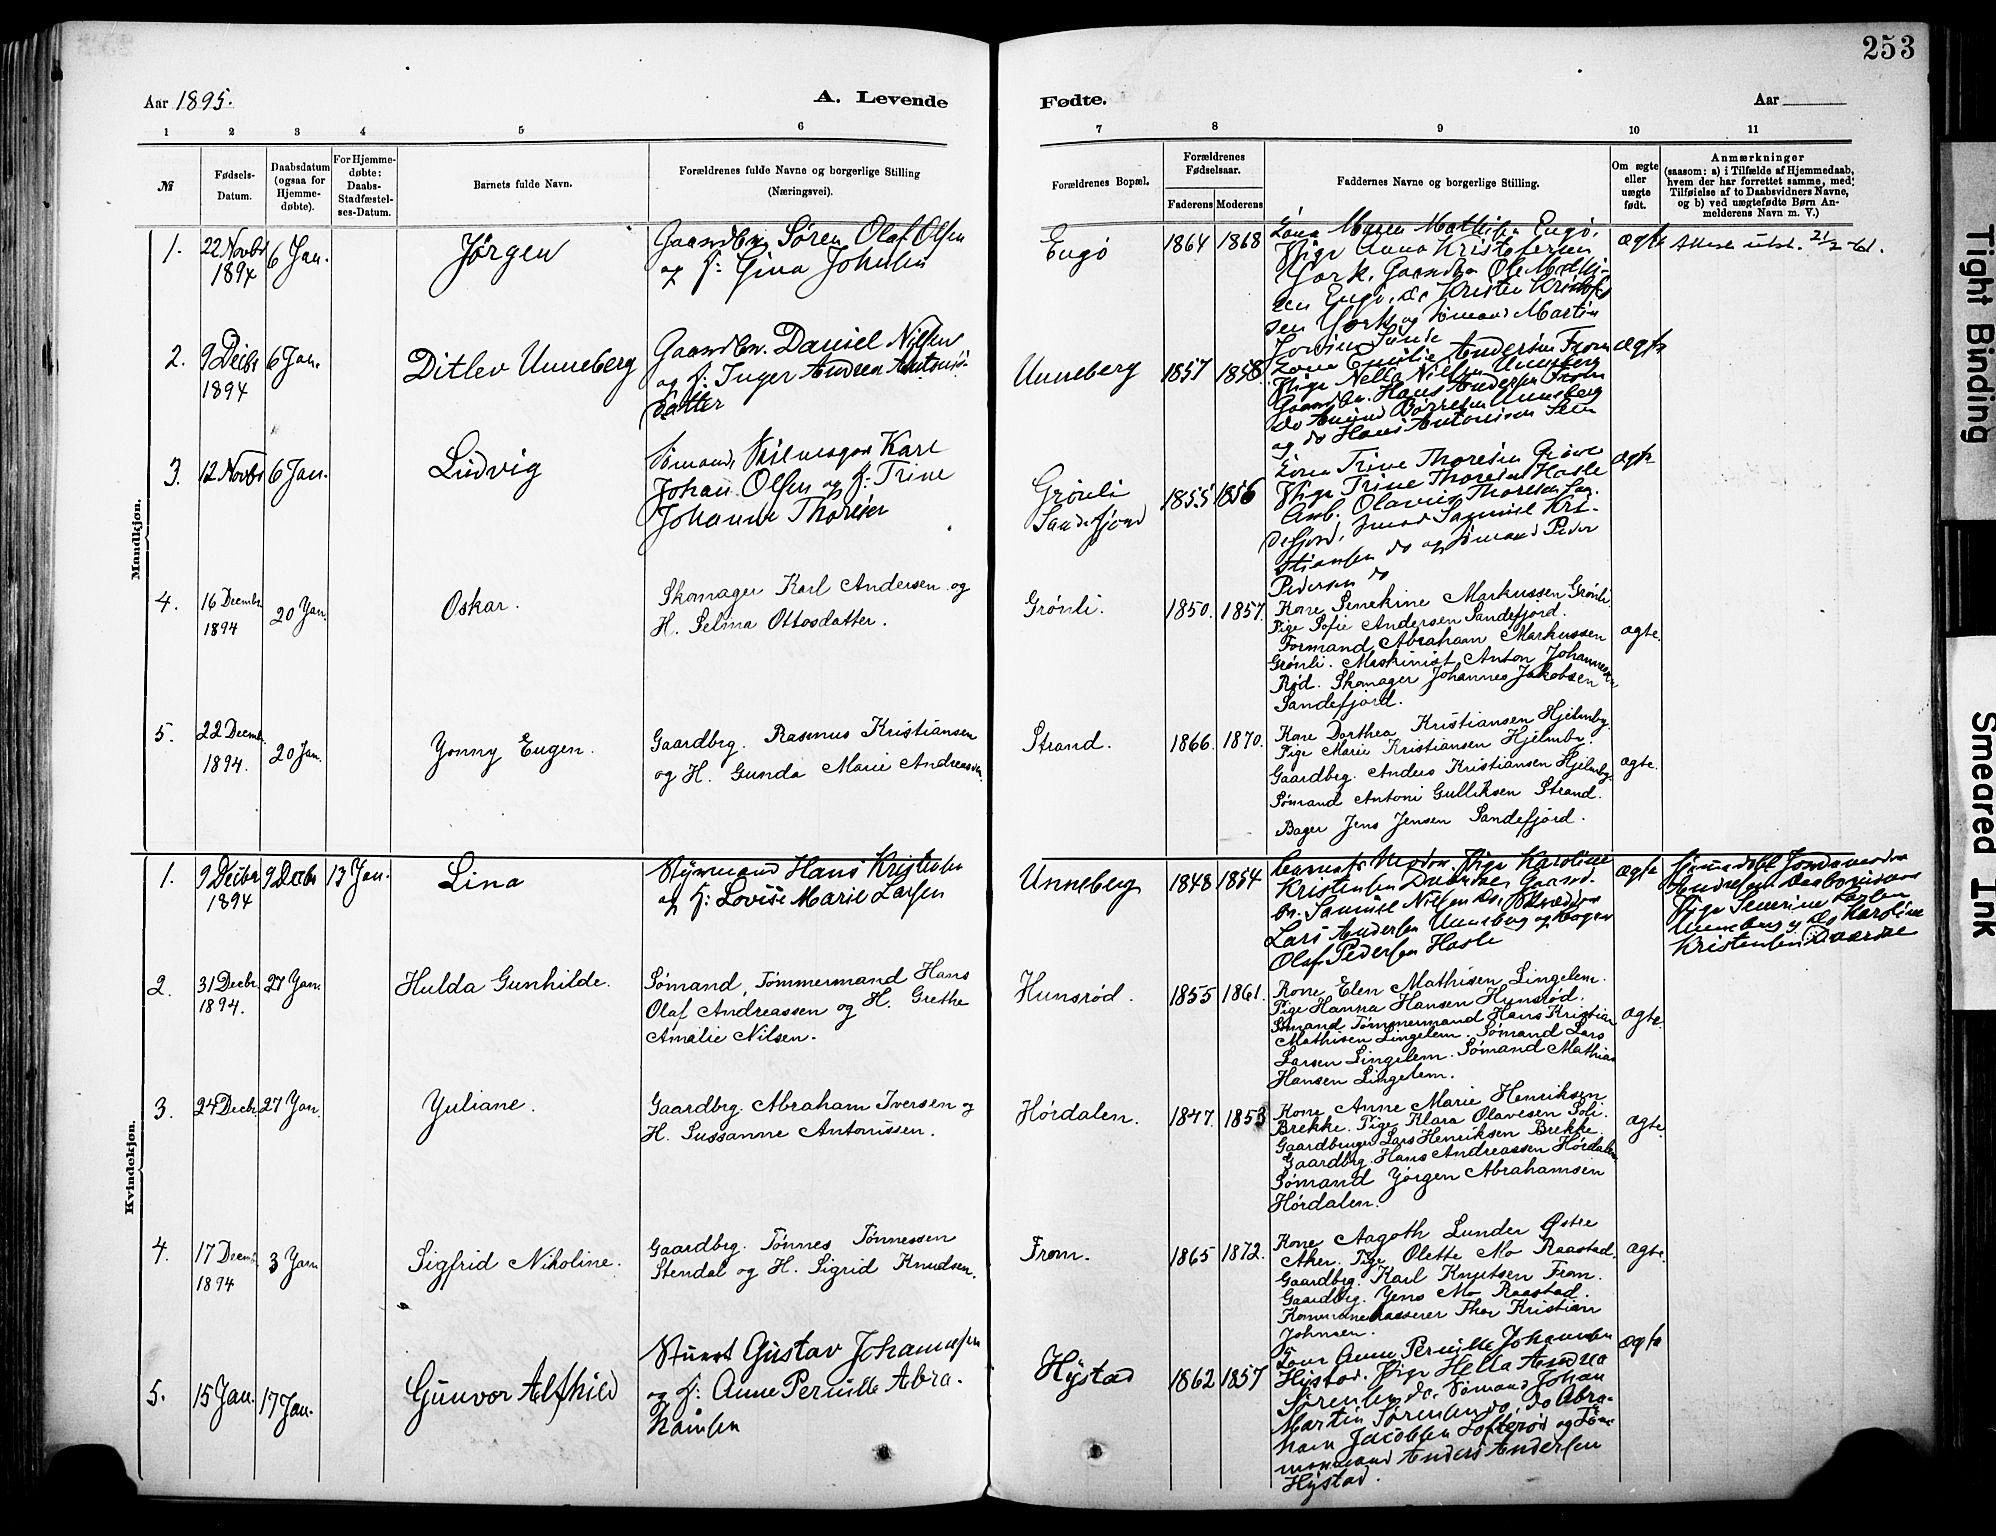 253
Aar 1895.
A. Levende
Fødte.
Aar
1 2 3 4 5 6 7 8 9 10 11
№
Fødsels-
Datum.
Daabsdatum
(ogsaa for
Hjemme-
døbte).
For Hjemme-
døbte:
Daabs-
Stadfæstel-
ses-Datum.
Barnets fulde Navn.
Forældrenes fulde Navne og borgerlige Stilling
(Næringsvei).
Forældrenes Bopæl.
Forældrenes
Fødselsaar.
Faderens Moderens
Faddernes Navne og borgerlige Stilling.
Om ægte
eller
uægte
født.
Anmærkninger
(saasom: a) i Tilfælde af Hjemmedaab,
hvem der har forrettet samme, med
Tilføielse af to Daabsvidners Navne,
og b) ved uægtefødte Børn An-
melderens Navn m. V.)
Mandkjøn.
1.
22 Novbr
1894
6 Jan.
Jørgen
Gaardbr. Søren Olaf Olsen
og H: Gina Johnsen
Engø
1864 1868
Kone Maren Mathisen Engø.
Pige Anna Kristofersen
York. Gaardbr. Ole Mathi-
sen Engø. do Krister Kristof-
sen York og Sømand Martin
ægte
Attest utst. 21/2-61.
2.
9 Decbr
1894
6 Jan.
Ditlev Unneberg
Gaardbr. Daniel Nilsen
og H: Inger Andrea Antonis-
datter
Unneberg
1857 1858
Kone Emilie Andersen From
Pige Nella Nilsen Unneberg
Gaardbr. Hans Andersen From
do Amund Børresen Unneberg
og do Hans Antonisen
ægte
3.
12 Novbr
6 Jan.
Ludvig
Sømand, Seilmager Karl
Johan Olsen og H. Trine
Johanne Thoresen
Grønli
Sandefjord
1855 1856
Kone Trine Thoresen
Pige Trine Thoresen Hasle
Arb. Olavus Thoresen San-
defjord, Smed Samuel Kri-
stiansen do og Sømand Peder
Pedersen do
ægte
4.
16 Decmbr.
1894
20 Jan.
Oskar.
Skomager Karl Andersen og
H. Selma Ottosdatter.
Grønli.
1850. 1857.
Kone Senekine Markussen Grønli.
Pige Sofie Andersen Sandefjord.
Formand Abraham Markussen
Grønli. Maskinist Anton Johannesen
Rød. Skomager Johannes Jakobsen
Sandefjord.
ægte.
5.
22 Decmbr.
1894.
20 Jan.
Yonny Eugen.
Gaardbrg. Rasmus Kristiansen
og H. Gunda Marie Andreassen.
Strand.
1866. 1870.
Kone Dorthea Kristiansen Hjelmby.
Pige Marie Kristiansen Hjelmby.
Gaardbrg. Anders Kristiansen Hjelmby.
Sømand Antoni Gulliksen Strand.
Bager Jens Jensen Sandefjord.
ægte.
Kvindekjøn.
1.
9 Decbr
1894
9 Decbr
13 Jan.
Lina
Styrmand Hans Kristensen
og H: Lovise Marie Larsen
Unneberg
1848 1854
Barnets Moder, Pige Karoline
Kristensen Gaard-
br. Samuel Nilsen do,
Lars Andersen Unneberg og
Olaf Pedersen Hasle
ægte
Hjemmedøbt Jordemoder
Andresen Daabsvidner
Pige Severine Larsen
Unneberg og do Karoline
Kristensen
2.
31 Decbr.
1894.
27 Jan.
Hulda Gunhilde.
Sømand, Tømmermand Hans
Olaf Andreassen og H. Grethe
Amalie Nilsen.
Hunsrød.
1855 1861.
Kone Elen Mathisen Lingelem.
Pige Hanna Hansen Hunsrød.
Sømand Tømmermand Hans Kristian
Mathisen Lingelem. Sømand Lars
Larsen Lingelem. Sømand Mathias
Hansen Lingelem.
ægte.
3.
24 Decbr.
27 Jan.
Yuliane.
Gaardbrg. Abraham Iversen og
H. Sussanne Antonissen.
Hørdalen.
1847. 1853
Kone Anne Marie Henriksen
Brekke. Pige Klara Olavesen Soli.
Gaardbruger Lars Henriksen Brekke.
Gaardbrg. Hans Andreassen Hørdalen
Sømand Jørgen Abrahamsen
Hørdalen.
ægte.
4.
17 Decmb.
1894
3 Jan
Sigfrid Nikoline.
Gaardbrg. Tønnes Tønnessen
Stendal og H. Sigrid Knudsen.
From.
1865 1872.
Kone Aagoth Lunder Østre
Aker. Pige Olette Mo Raastad.
Gaardbrg. Karl Knutsen From.
Gaardbrg. Jens Mo Raastad.
Kommunekasserer Thor Kristian
Johnsen.
ægte.
5.
15 Jan.
17 Jan.
Gunvor Alfhild
Stuert Gustav Johannesen
og H: Anne Pernille Abra-
hamsen
Hystad
1862 1857
Kone Anne Pernille Johansen
Hystad. Pige Hella Andrea
Sørensen do. Sømand Johan
Martin Sørensen do, do Abra-
ham Jacobsen Lofterød og Tøm-
mermand Anders Andersen
Hystad.
ægte
Tight Binding
Smeared Ink